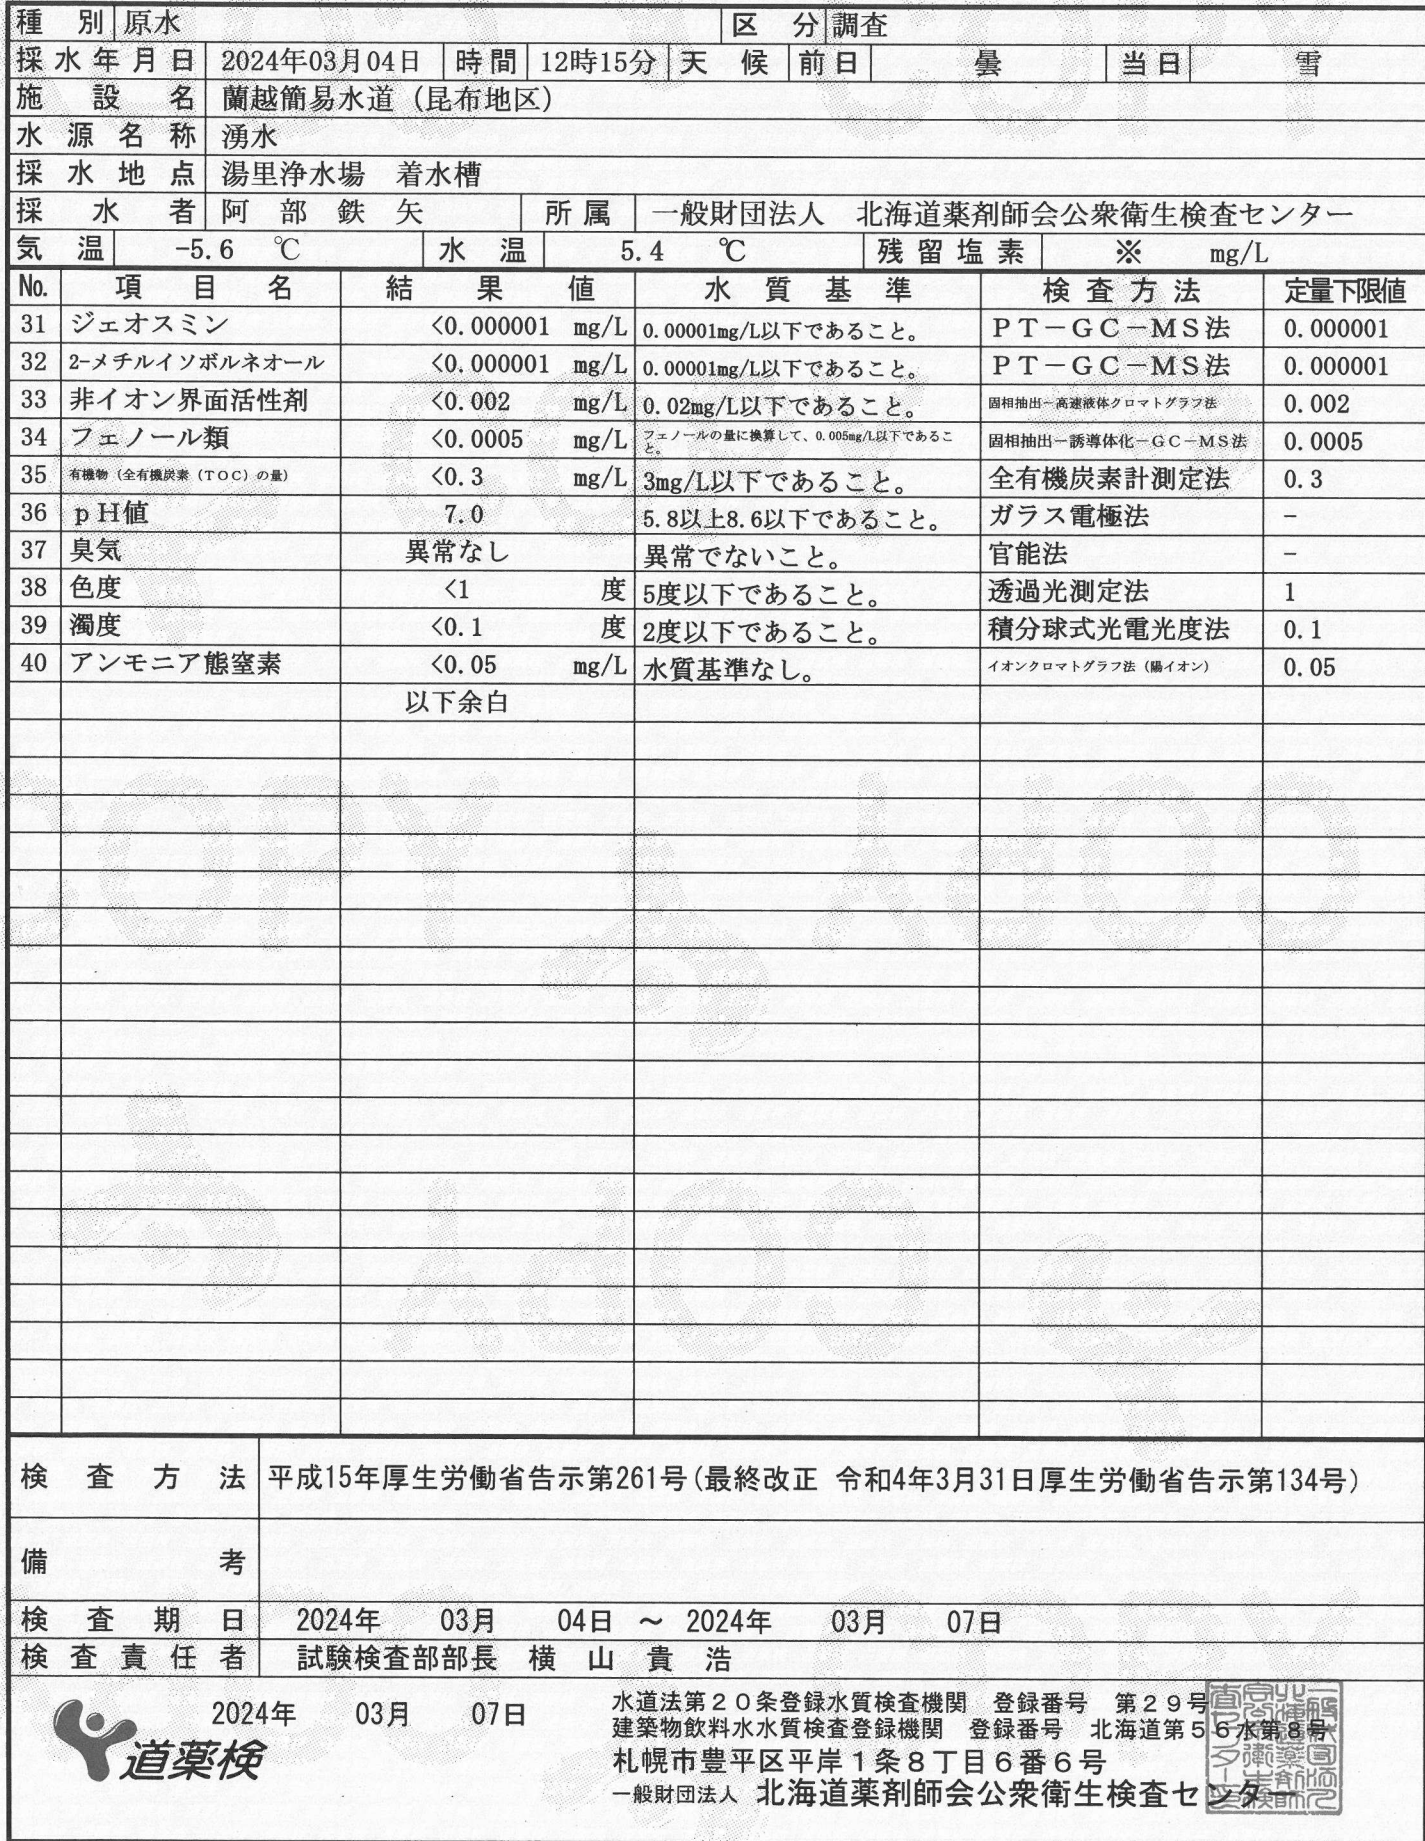 種別 原水 区分 調査
採水年月日 2024年03月04日 時間 12時15分 天候 前日 曇 当日 雪
施設名 蘭越簡易水道（昆布地区）
水源名称 湧水
採水地点 湯里浄水場　着水槽
採水者 阿部鉄矢 所属 一般財団法人　北海道薬剤師会公衆衛生検査センター
気温 -5.6 ℃ 水温 5.4 ℃ 残留塩素 ※ mg/L
No. 項目名 結果値 水質基準 検査方法 定量下限値
31 ジェオスミン <0.000001 mg/L 0.00001mg/L以下であること。 ＰＴ－ＧＣ－ＭＳ法 0.000001
32 2-メチルイソボルネオール <0.000001 mg/L 0.00001mg/L以下であること。 ＰＴ－ＧＣ－ＭＳ法 0.000001
33 非イオン界面活性剤 <0.002 mg/L 0.02mg/L以下であること。 固相抽出－高速液体クロマトグラフ法 0.002
34 フェノール類 <0.0005 mg/L フェノールの量に換算して、0.005mg/L以下であるこ
と。 固相抽出－誘導体化－ＧＣ－ＭＳ法 0.0005
35 有機物（全有機炭素（ＴＯＣ）の量） <0.3 mg/L 3mg/L以下であること。 全有機炭素計測定法 0.3
36 ｐＨ値 7.0 5.8以上8.6以下であること。 ガラス電極法 －
37 臭気 異常なし 異常でないこと。 官能法 －
38 色度 <1 度 5度以下であること。 透過光測定法 1
39 濁度 <0.1 度 2度以下であること。 積分球式光電光度法 0.1
40 アンモニア態窒素 <0.05 mg/L 水質基準なし。 イオンクロマトグラフ法（陽イオン） 0.05
以下余白
検査方法 平成15年厚生労働省告示第261号(最終改正 令和4年3月31日厚生労働省告示第134号)
備考
検査期日 2024年 03月 04日 ～ 2024年 03月 07日
検査責任者 試験検査部部長 横山貴浩
2024年 03月 07日
道薬検
水道法第２０条登録水質検査機関　登録番号　第２９号
建築物飲料水水質検査登録機関　登録番号　北海道第５６水第８号
札幌市豊平区平岸１条８丁目６番６号
一般財団法人 北海道薬剤師会公衆衛生検査センター
COPY
COPY
COPY